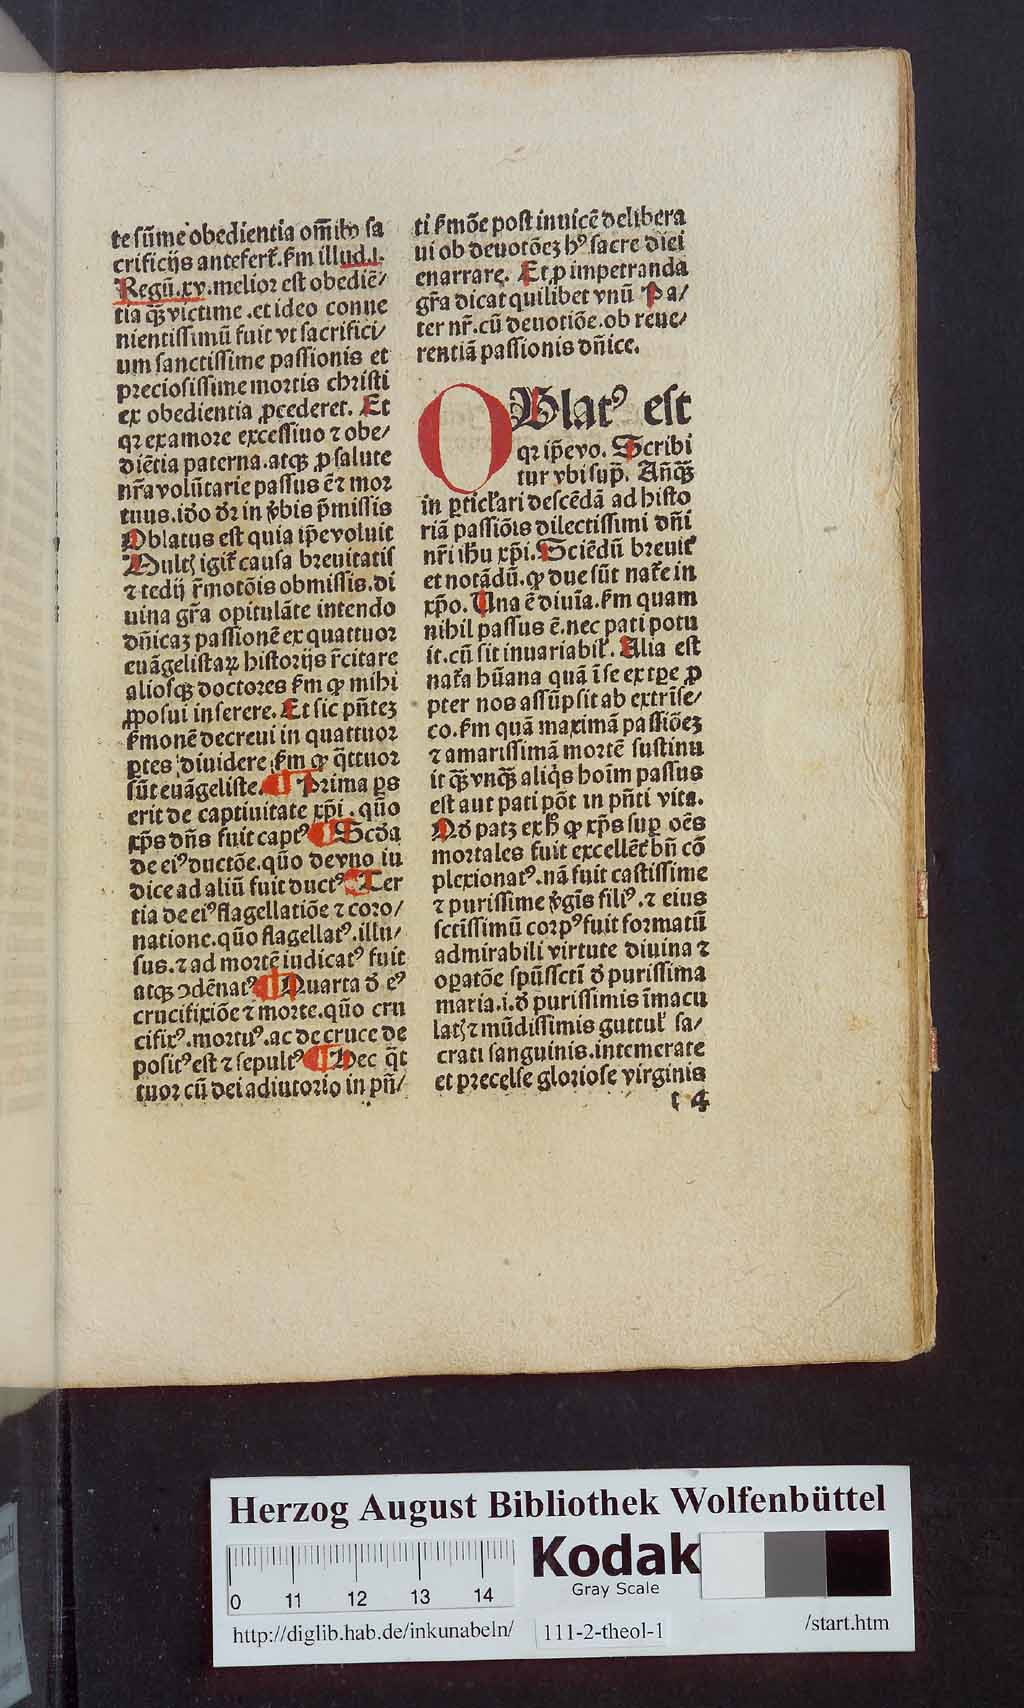 te sūme obedientia om̄ibꝰ sa
crificijs antefert᷑. ẜm illud .i.
Regū. xv. melior est obediē⸗
tia qȝ̄ victime .et ideo conue
nientissimū fuit vt sacrifici⸗
um sanctissime passionis et
preciosissime mortis christi
ex obedientia ꝓcederet. Et
qꝛ ex amore excessiuo ⁊ obe⸗
diētia paterna.atqȝ ꝓ salute
nr̄a volūtarie passus ē ⁊ mor
tuus.iđo dꝛ in v̓bis p̄missis
Oblatus est quia ip̄e voluit
Multꝭ igit᷑ causa breuitatis
⁊ tedij r̄motōis obmissis.di
uina gr̄a opitulāte intendo
dn̄icaȝ passionē ex quattuor
euāgelistaꝝ historijs r̄citare
aliosqȝ doctores ẜm ꝙ mihi
ꝓposui inserere. Et sic pn̄teȝ
ẜmonē decreui in quattuor
ꝑtes diuidere ẜm ꝙ q̄ttuor
sūt euāgeliste. Prima ꝑs
erit de captiuitate xp̄i . quō
xp̄s dn̄s fuit captꝰ Scd̓a
de eiꝰ ductōe.quō de vno iu
dice ad aliū fuit ductꝰ Ter
tia de eiꝰ flagellatiōe ⁊ coro⸗
natione.quō flagellatꝰ.illu⸗
sus.⁊ ad mortē iudicatꝰ fuit
atqȝ ꝯdēnatꝰ Quarta đ eꝰ
crucifixiōe ⁊ morte.quō cru
cifixꝰ.mortuꝰ.ac de cruce de
positꝰ est ⁊ sepultꝰ Hec q̄t
tuor cū dei adiutorio in pn̄⸗
ti ẜmōe post inuicē delibera
ui ob deuotōeȝ hꝰ sacre diei
enarrare. Et ꝓ impetranda
gr̄a dicat quilibet vnū Pa⸗
ter nr̄.cū deuotiōe.ob reue⸗
rentiā passionis dn̄ice.
OBlatꝰ est
qꝛ ip̄e vo. Scribi
tur vbi suꝑ. Añqȝ̄
in ꝑticl̓ari descēdā ad histo
riā passiōis dilectissimi dn̄i
nr̄i ih̄u xp̄i. Sciēdū breuit᷑
et notādū.ꝙ due sūt nat᷑e in
xp̄o. Una ē diuīa.ẜm quam
nihil passus ē.nec pati potu
it.cū sit inuariabil̓. Alia est
nat᷑a hūana quā ī se ex tꝑe ꝓ
pter nos assūpsit ab extrīse⸗
co.ẜm quā maximā passiōeȝ
⁊ amarissimā mortē sustinu
it qȝ̄ vnqȝ̄ aliq̇s hoīm passus
est aut pati pōt in pn̄ti vita.
Qđ patȝ ex hͦ ꝙ xp̄s suꝑ oēs
mortales fuit excellēt᷑ bn̄ cō
plexionatꝰ.nā fuit castissime
⁊ purissime v̓gīs filiꝰ.⁊ eius
sctissimū corpꝰ fuit formatū
admirabili virtute diuina ⁊
oꝑatōe spūssct̄i đ purissima
maria.i.đ purissimis īmacu
latꝭ ⁊ mūdissimis guttul̓ sa⸗
crati sanguinis.intemerate
et precelse gloriose virginis
t 4
Herzog August Bibliothek Wolfenbüttel
0 11 12 13 14
Kodak
Gray Scale
http://diglib.hab.de/inkunabeln/ 111-2-theol-1 /start.htm